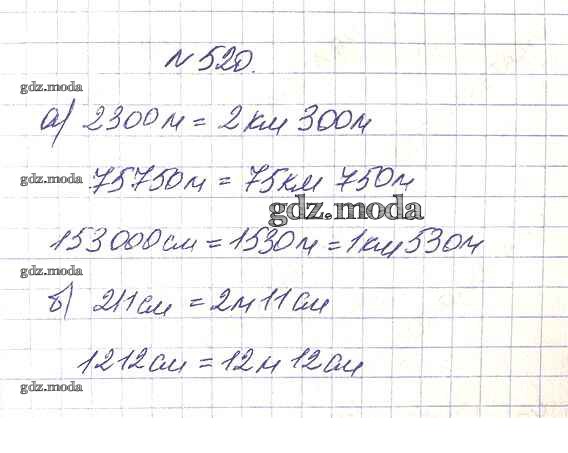 N 520.
gdz.moda
а) 2300м = 2км 300м
gdz.moda 75750м = 75км 750м
gdz.moda
153000см = 1530м = 1км 530м
gdz.moda
б) 211см = 2м 11см
1212см = 12м 12см
gdz.moda